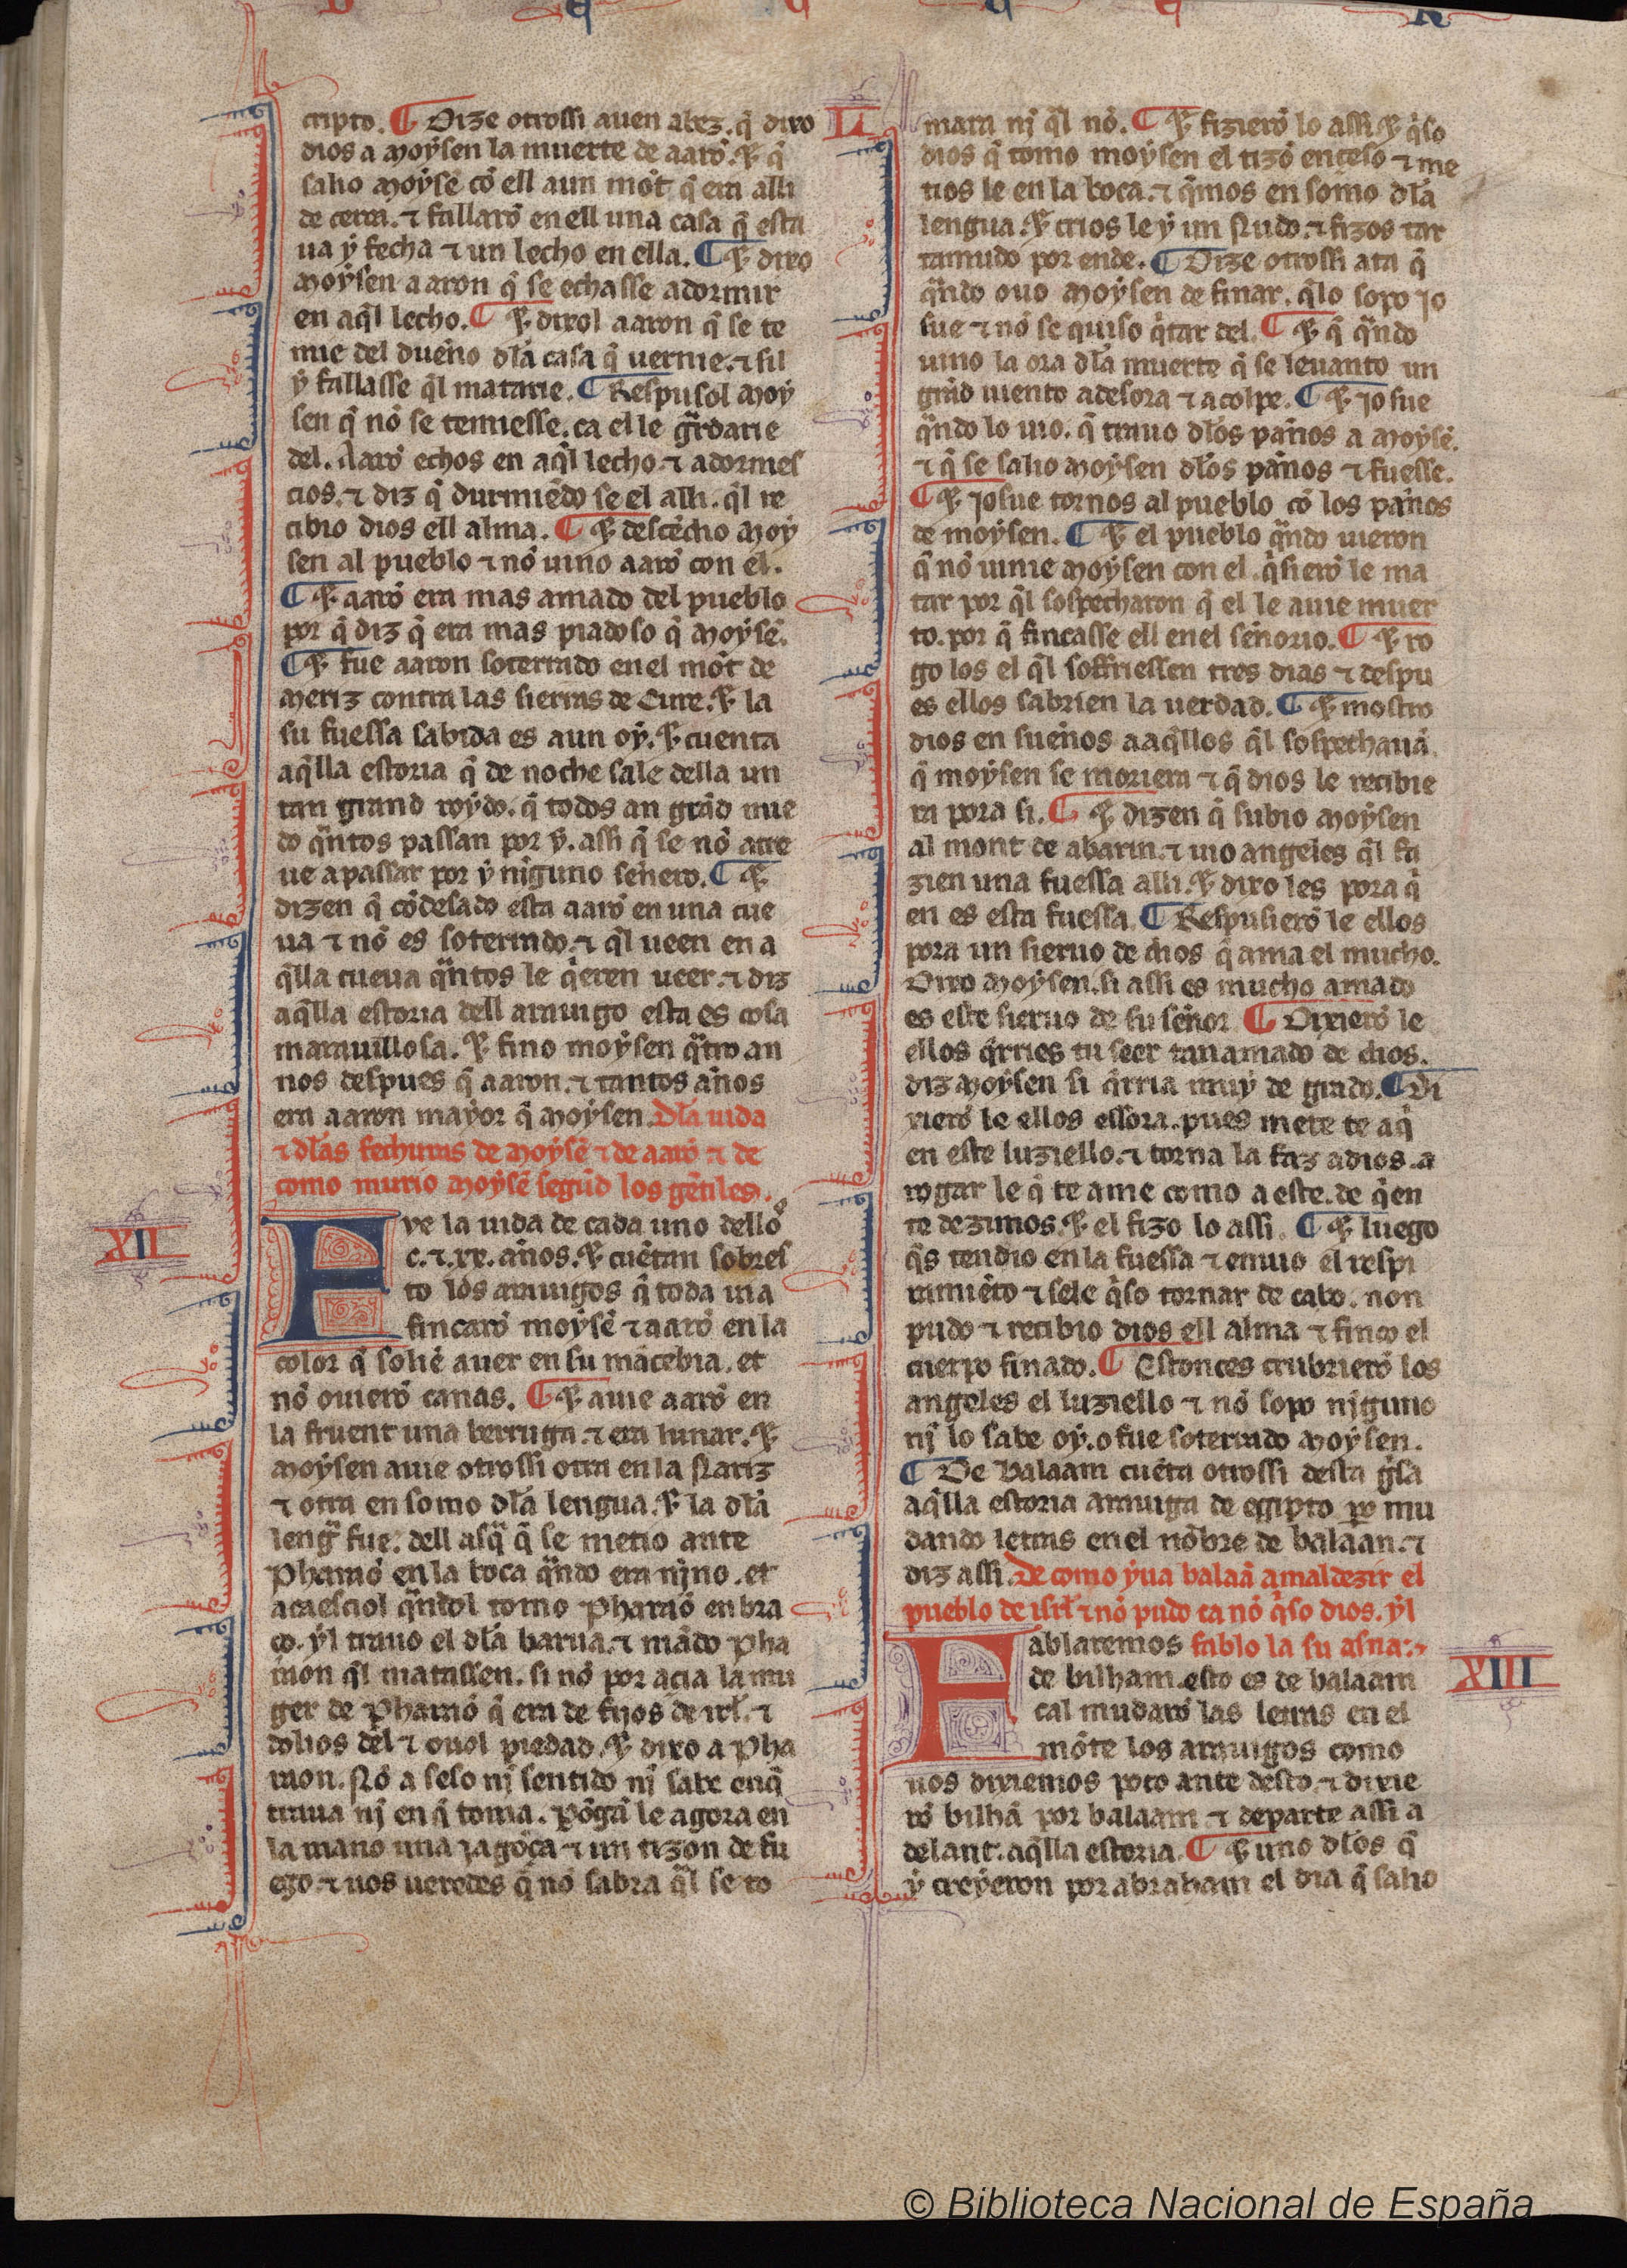 cripto. ¶ Dize otrossi auen abez. q̃ dixo
dios a moysen la muerte de aarõ. ⁊ q̃
salio moysẽ cõ ell a un mõt q̃ era alli
de cerca. ⁊ fallarõ en ell una casa q̃ esta
ua y fecha ⁊ un lecho en ella. ¶ ⁊ dixo
moysen a aron q̃ se echasse a dormir
en aq̃l lecho. ¶ ⁊ dixol aaron q̃ se te
mie del dueño dla casa q̃ uernie. ⁊ sil
y fallasse q̃l matarie. ¶ Respusol moy
sen q̃ nõ se temiesse. ca el le gr̃darie
del. Aarõ echos en aq̃l lecho. ⁊ adormes
cios. ⁊ diz q̃ durmiẽdo se el alli. q̃l re
cibio dios ell alma. ¶ ⁊ descẽdio moy
sen al pueblo ⁊ nõ uino aarõ con el.
¶ ⁊ aarõ era mas amado del pueblo
por q̃ diz q̃ era mas piadoso q̃ moysẽ.
¶ ⁊ fue aaron soterrado en el mõt de
meriz contra las sierras de Cure. ⁊ la
su fuessa sabida es aun oy. ⁊ cuenta
aq̃lla estoria q̃ de noche sale della un
tan grand roydo. q̃ todos an grãd mie
do q̃ntos passan por y. assi q̃ se nõ atre
ue a passar por y niguno señero. ¶ ⁊
dizen q̃ cõdesado esta aarõ en una cue
ua ⁊ nõ es soterrado. ⁊ q̃l ueen en a
q̃lla cueua q̃ntos le q̃eren ueer. ⁊ diz
aq̃lla estoria dell arauigo esta es cosa
marauillosa. ⁊ fino moysen q̃tro an
nos despues q̃ aaron. ⁊ tantos años
era aaron mayor q̃ moysen. Dla uida
⁊ dlas fechuras de moysẽ ⁊ de aarõ ⁊ de
como murio moysẽ segũd los gẽtiles.
XII
Fve la uida de cada uno dello
c. ⁊ .xx. años. ⁊ cuẽtan sobres
to los arauigos q̃ toda uia
fincarõ moysẽ ⁊ aarõ en la
color q̃ soliẽ auer en su mãcebia. et
nõ ouierõ canas. ¶ ⁊ auie aarõ en
la fruent una berruga. ⁊ era lunar. ⁊
moysen auie otrossi otra en la nariz
⁊ otra en somo dla lengua. ⁊ la dla
leng̃ fue. dell asq̃ q̃ se metio ante
pharaõ en la boca q̃ndo era nino. et
acaesciol q̃ndol tomo pharaõ en bra
ço. yl trauo el dla barua. ⁊ mãdo pha
raon q̃l matassen. si nõ por acia la mu
ger de pharaõ q̃ era de fijos de irl. ⁊
dolios del ⁊ ouol piedad. ⁊ dixo a pha
raon. Nõ a seso nj sentido nj sabe en q̃
traua nj en q̃ toma. põgã le agora en
la mano una jagõça ⁊ un tizon de fu
ego. ⁊ uos ueredes q̃ nõ sabra q̃l se to
LI
mara nj q̃l nõ. ¶ ⁊ fizierõ lo assi. ⁊ q̃so
dios q̃ tomo moysen el tizõ ençeso ⁊ me
tios le en la boca. ⁊ q̃mos en somo dla
lengua. ⁊ crios le y un nudo. ⁊ fizos tar
tamudo por ende. ¶ Dize otrossi ata q̃
q̃ndo ouo moysen de finar. q̃lo sopo jo
sue ⁊ nõ se quiso q̃tar del. ¶ ⁊ q̃ q̃ndo
uino la ora dla muerte q̃ se leuanto un
grãd uiento a desora ⁊ a colpe. ¶ ⁊ josue
q̃ndo lo uio. q̃ trauo dlos pãños a moysẽ.
⁊ q̃ se salio moysen dlos pãños ⁊ fuesse.
¶ ⁊ josue tornos al pueblo cõ los paños
de moysen. ¶ ⁊ el pueblo q̃ndo uieron
q̃ nõ uinie moysen con el. q̃sierõ le ma
tar por q̃l sospecharon q̃ el le auie muer
to. por q̃ fincasse ell en el señorio. ¶ ⁊ ro
go los el q̃l soffriessen tres dias ⁊ despu
es ellos sabrien la uerdad. ¶ ⁊ mostro
dios en sueños a aq̃llos q̃l sospechauã
q̃ moysen se moriera ⁊ q̃ dios le recibie
ra pora si. ¶ ⁊ dizen q̃ subio moysen
al mont de abarin. ⁊ uio angeles q̃l fa
zien una fuessa alli. ⁊ dixo les pora q̃
en es esta fuessa. ¶ Respusierõ le ellos
pora un sieruo de dios q̃ ama el mucho.
Dixo moysen. si assi es mucho amado
es este sieruo de su señor. ¶ Dixierõ le
ellos q̃rries tu seer tan amado de dios.
diz moysen si q̃rria muy de grado. ¶ Di
xierõ le ellos essora. pues mete te aq̃
en este luziello. ⁊ torna la faz a dios. a
rogar le q̃ te ame como a este. de q̃en
te dezimos. ⁊ el fizo lo assi. ¶ ⁊ luego
q̃s tendio en la fuessa ⁊ enuio el respi
ramiẽto ⁊ sele q̃so tornar de cabo. non
pudo ⁊ recibio dios ell alma ⁊ finco el
cuerpo finado. ¶ Estonces crubrierõ los
angeles el luziello ⁊ nõ sopo njguno
nj lo sabe oy. o fue soterrado moysen.
¶ De Balaam cuẽta otrossi desta g̃sa
aq̃lla estoria arauiga de egipto. ꝑo mu
dando letras en el nõbre de balaan. ⁊
diz assi. De como yua balaã a maldezir el
pueblo de isrl ⁊ nõ pudo ca nõ q̃so dios. yl
fablo la su asna:~
XIII
Fablaremos
de bilham. esto es de balaam
cal mudarõ las letras en el
nõbre los arauigos como
nos dixiemos poco ante desto. ⁊ dixie
rõ bilhã por balaam ⁊ departe assi a
delant. aq̃lla estoria. ¶ ⁊ uno dlos q̃
y creyeron por abraham el dia q̃ salio
© Biblioteca Nacional de España